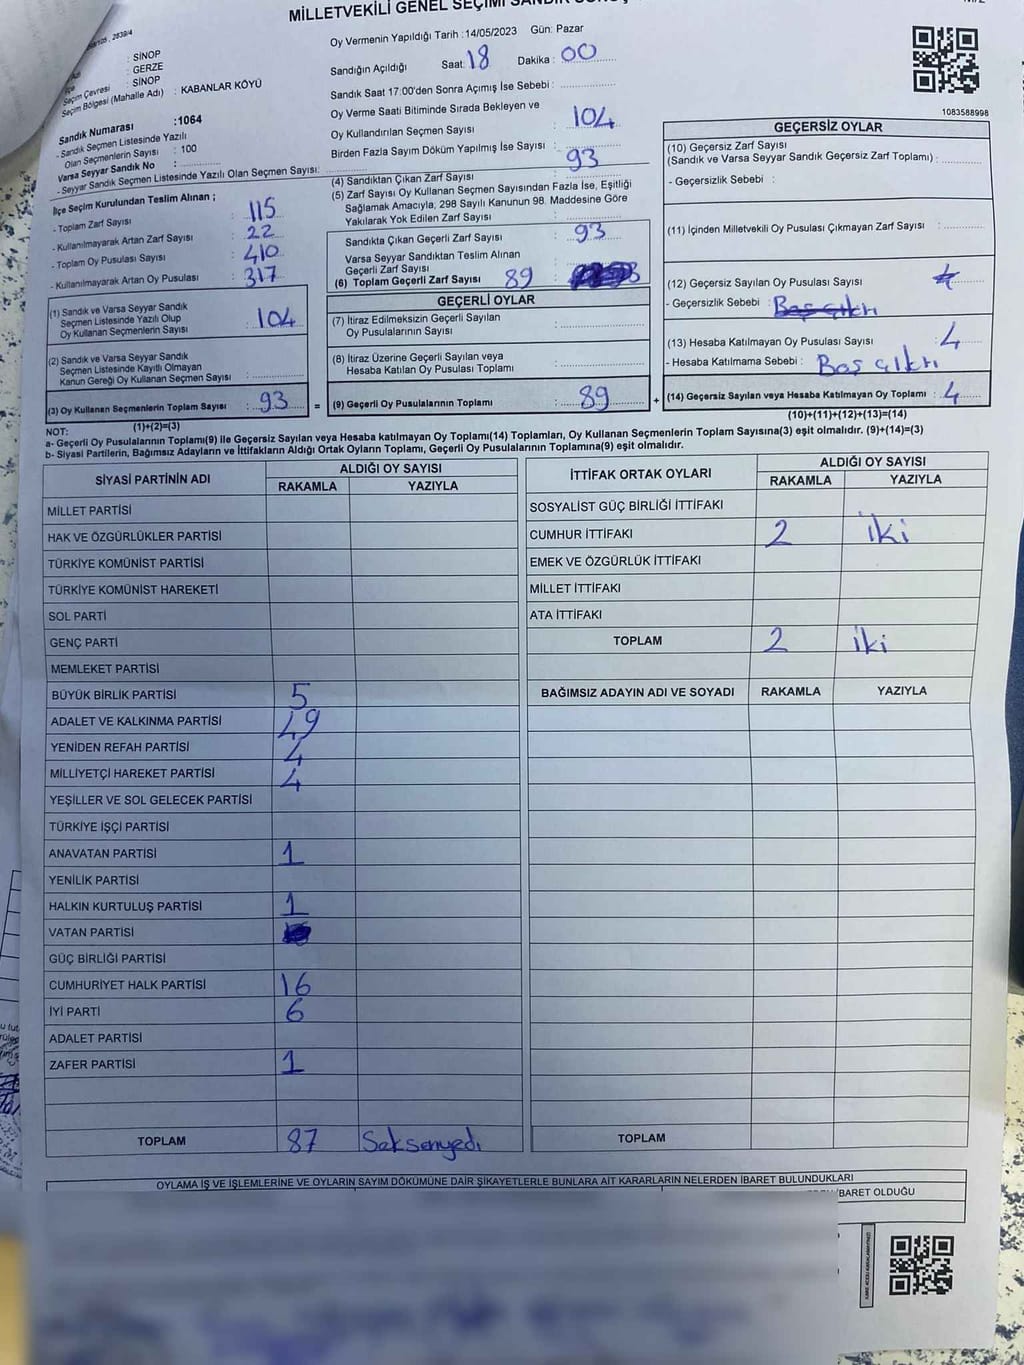 MİLLETVEKİLİ GENEL SEÇİMİ SANDIK
: SİNOP
İlçe : GERZE
Seçim Çevresi : SİNOP
Seçim Bölgesi (Mahalle Adı) : KABANLAR KÖYÜ
Sandık Numarası :1064
- Sandık Seçmen Listesinde Yazılı
Olan Seçmenlerin Sayısı : 100
Varsa Seyyar Sandık No :
- Seyyar Sandık Seçmen Listesinde Yazılı Olan Seçmen Sayısı:
İlçe Seçim Kurulundan Teslim Alınan ;
- Toplam Zarf Sayısı : 115
- Kullanılmayarak Artan Zarf Sayısı : 22
- Toplam Oy Pusulası Sayısı : 410
- Kullanılmayarak Artan Oy Pusulası : 317
(1) Sandık ve Varsa Seyyar Sandık
Seçmen Listesinde Yazılı Olup
Oy Kullanan Seçmenlerin Sayısı : 104
(2) Sandık ve Varsa Seyyar Sandık
Seçmen Listesinde Kayıtlı Olmayan
Kanun Gereği Oy Kullanan Seçmen Sayısı :
(3) Oy Kullanan Seçmenlerin Toplam Sayısı : 93 =
(1)+(2)=(3)
Oy Vermenin Yapıldığı Tarih :14/05/2023 Gün: Pazar
Sandığın Açıldığı Saat: 18 Dakika : 00
Sandık Saat 17:00'den Sonra Açımış İse Sebebi :
Oy Verme Saati Bitiminde Sırada Bekleyen ve
Oy Kullandırılan Seçmen Sayısı : 104
Birden Fazla Sayım Döküm Yapılmış İse Sayısı :
(4) Sandıktan Çıkan Zarf Sayısı : 93
(5) Zarf Sayısı Oy Kullanan Seçmen Sayısından Fazla İse, Eşitliği
Sağlamak Amacıyla, 298 Sayılı Kanunun 98. Maddesine Göre
Yakılarak Yok Edilen Zarf Sayısı :
Sandıkta Çıkan Geçerli Zarf Sayısı : 93
Varsa Seyyar Sandıktan Teslim Alınan
Geçerli Zarf Sayısı :
(6) Toplam Geçerli Zarf Sayısı 89 :
GEÇERLİ OYLAR
(7) İtiraz Edilmeksizin Geçerli Sayılan
Oy Pusulalarının Sayısı :
(8) İtiraz Üzerine Geçerli Sayılan veya
Hesaba Katılan Oy Pusulası Toplamı :
(9) Geçerli Oy Pusulalarının Toplamı : 89 +
1083588998
GEÇERSİZ OYLAR
(10) Geçersiz Zarf Sayısı
(Sandık ve Varsa Seyyar Sandık Geçersiz Zarf Toplamı) :
- Geçersizlik Sebebi :
(11) İçinden Milletvekili Oy Pusulası Çıkmayan Zarf Sayısı :
(12) Geçersiz Sayılan Oy Pusulası Sayısı : 4
- Geçersizlik Sebebi : Boş çıktı
(13) Hesaba Katılmayan Oy Pusulası Sayısı : 4
- Hesaba Katılmama Sebebi : Boş çıktı
(14) Geçersiz Sayılan veya Hesaba Katılmayan Oy Toplamı : 4
(10)+(11)+(12)+(13)=(14)
NOT:
a- Geçerli Oy Pusulalarının Toplamı(9) ile Geçersiz Sayılan veya Hesaba katılmayan Oy Toplamı(14) Toplamları, Oy Kullanan Seçmenlerin Toplam Sayısına(3) eşit olmalıdır. (9)+(14)=(3)
b- Siyasi Partilerin, Bağımsız Adayların ve İttifakların Aldığı Ortak Oyların Toplamı, Geçerli Oy Pusulalarının Toplamına(9) eşit olmalıdır.
SİYASİ PARTİNİN ADI ALDIĞI OY SAYISI
RAKAMLA YAZIYLA
MİLLET PARTİSİ
HAK VE ÖZGÜRLÜKLER PARTİSİ
TÜRKİYE KOMÜNİST PARTİSİ
TÜRKİYE KOMÜNİST HAREKETİ
SOL PARTİ
GENÇ PARTİ
MEMLEKET PARTİSİ
BÜYÜK BİRLİK PARTİSİ 5
ADALET VE KALKINMA PARTİSİ 49
YENİDEN REFAH PARTİSİ 4
MİLLİYETÇİ HAREKET PARTİSİ 4
YEŞİLLER VE SOL GELECEK PARTİSİ
TÜRKİYE İŞÇİ PARTİSİ
ANAVATAN PARTİSİ 1
YENİLİK PARTİSİ
HALKIN KURTULUŞ PARTİSİ 1
VATAN PARTİSİ
GÜÇ BİRLİĞİ PARTİSİ
CUMHURİYET HALK PARTİSİ 16
İYİ PARTİ 6
ADALET PARTİSİ
ZAFER PARTİSİ 1
TOPLAM 87 Seksenyedi
İTTİFAK ORTAK OYLARI ALDIĞI OY SAYISI
RAKAMLA YAZIYLA
SOSYALİST GÜÇ BİRLİĞİ İTTİFAKI
CUMHUR İTTİFAKI 2 iki
EMEK VE ÖZGÜRLÜK İTTİFAKI
MİLLET İTTİFAKI
ATA İTTİFAKI
TOPLAM 2 iki
BAĞIMSIZ ADAYIN ADI VE SOYADI RAKAMLA YAZIYLA
TOPLAM
OYLAMA İŞ VE İŞLEMLERİNE VE OYLARIN SAYIM DÖKÜMÜNE DAİR ŞİKAYETLERLE BUNLARA AİT KARARLARIN NELERDEN İBARET BULUNDUKLARI
İBARET OLDUĞU